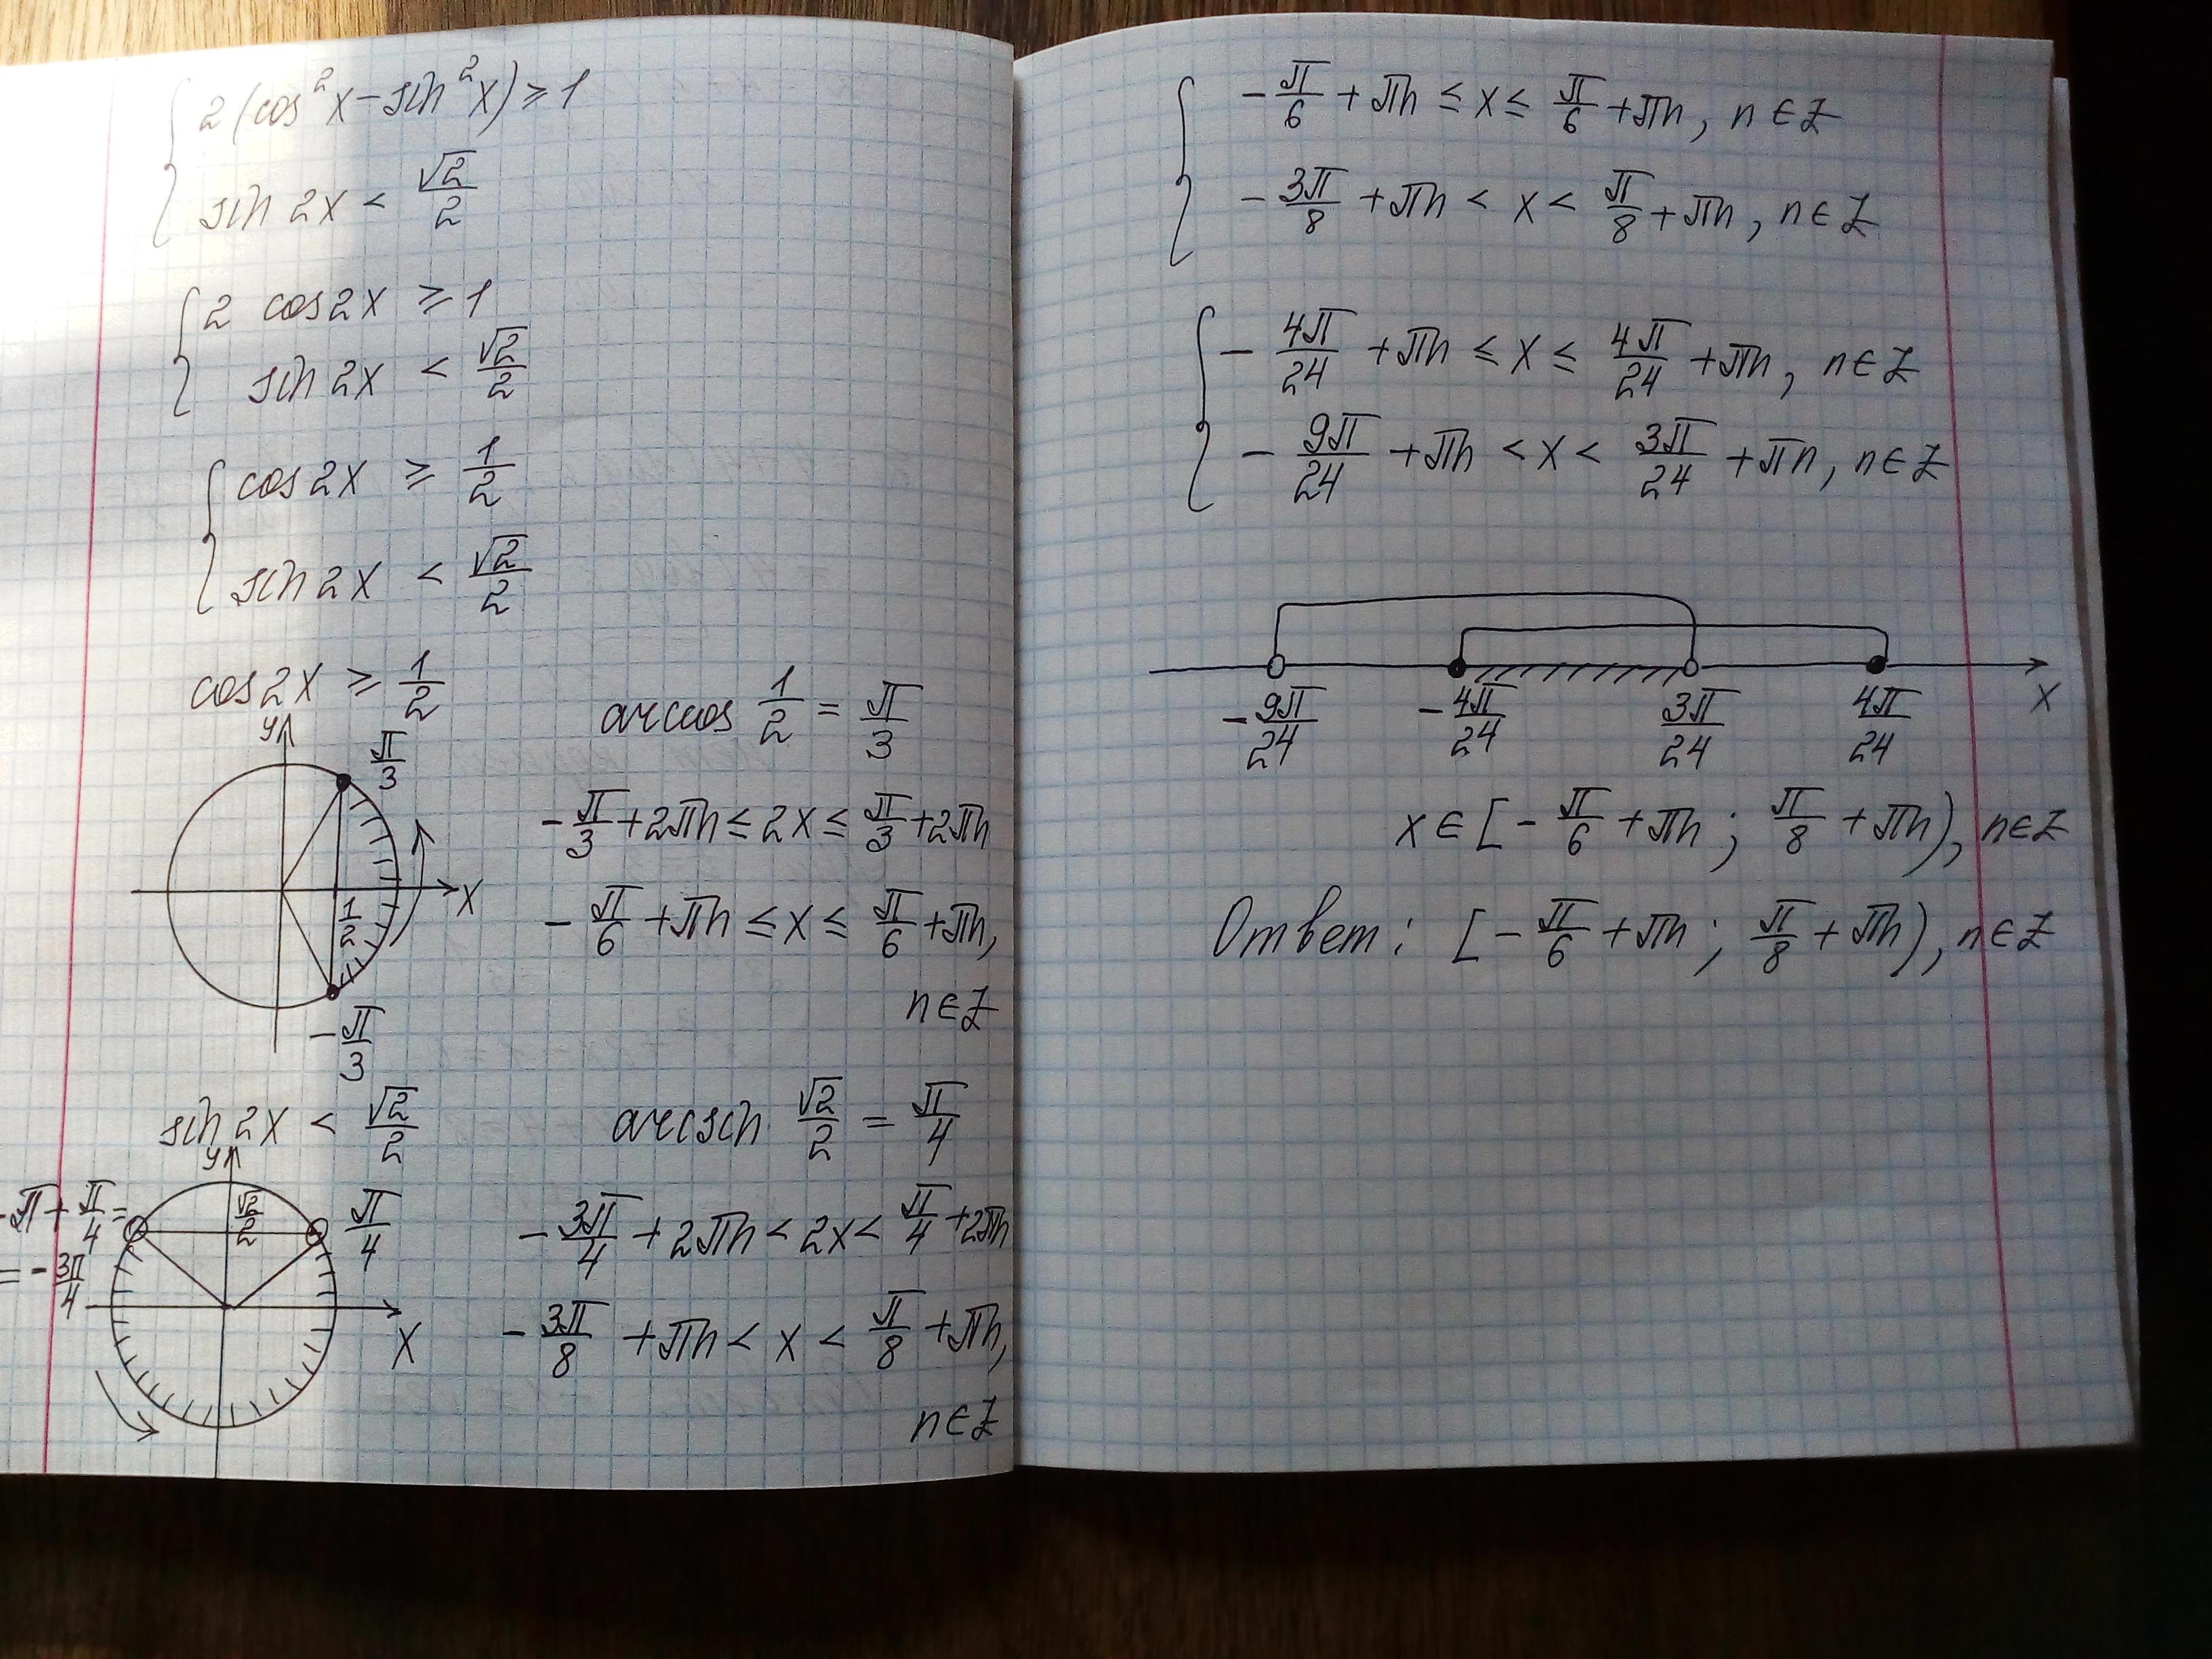 2(cos²x - sin²x) ≥ 1
sin 2x < √2/2
2 cos2x ≥ 1
sin 2x < √2/2
cos 2x ≥ 1/2
sin 2x < √2/2
cos2x ≥ 1/2
arccos 1/2 = π/3
y
π/3
x
1/2
-π/3
-π/3 + 2πn ≤ 2x ≤ π/3 + 2πn
-π/6 + πn ≤ x ≤ π/6 + πn,
n ∈ Z
sin 2x < √2/2
arcsin √2/2 = π/4
y
-π + π/4 =
= -3π/4
√2/2
π/4
x
-3π/4 + 2πn < 2x < π/4 + 2πn
-3π/8 + πn < x < π/8 + πn,
n ∈ Z
-π/6 + πn ≤ x ≤ π/6 + πn, n ∈ Z
-3π/8 + πn < x < π/8 + πn, n ∈ Z
-4π/24 + πn ≤ x ≤ 4π/24 + πn, n ∈ Z
-9π/24 + πn < x < 3π/24 + πn, n ∈ Z
-9π/24 -4π/24 3π/24 4π/24 x
x ∈ [-π/6 + πn; π/8 + πn), n ∈ Z
Ответ: [-π/6 + πn; π/8 + πn), n ∈ Z